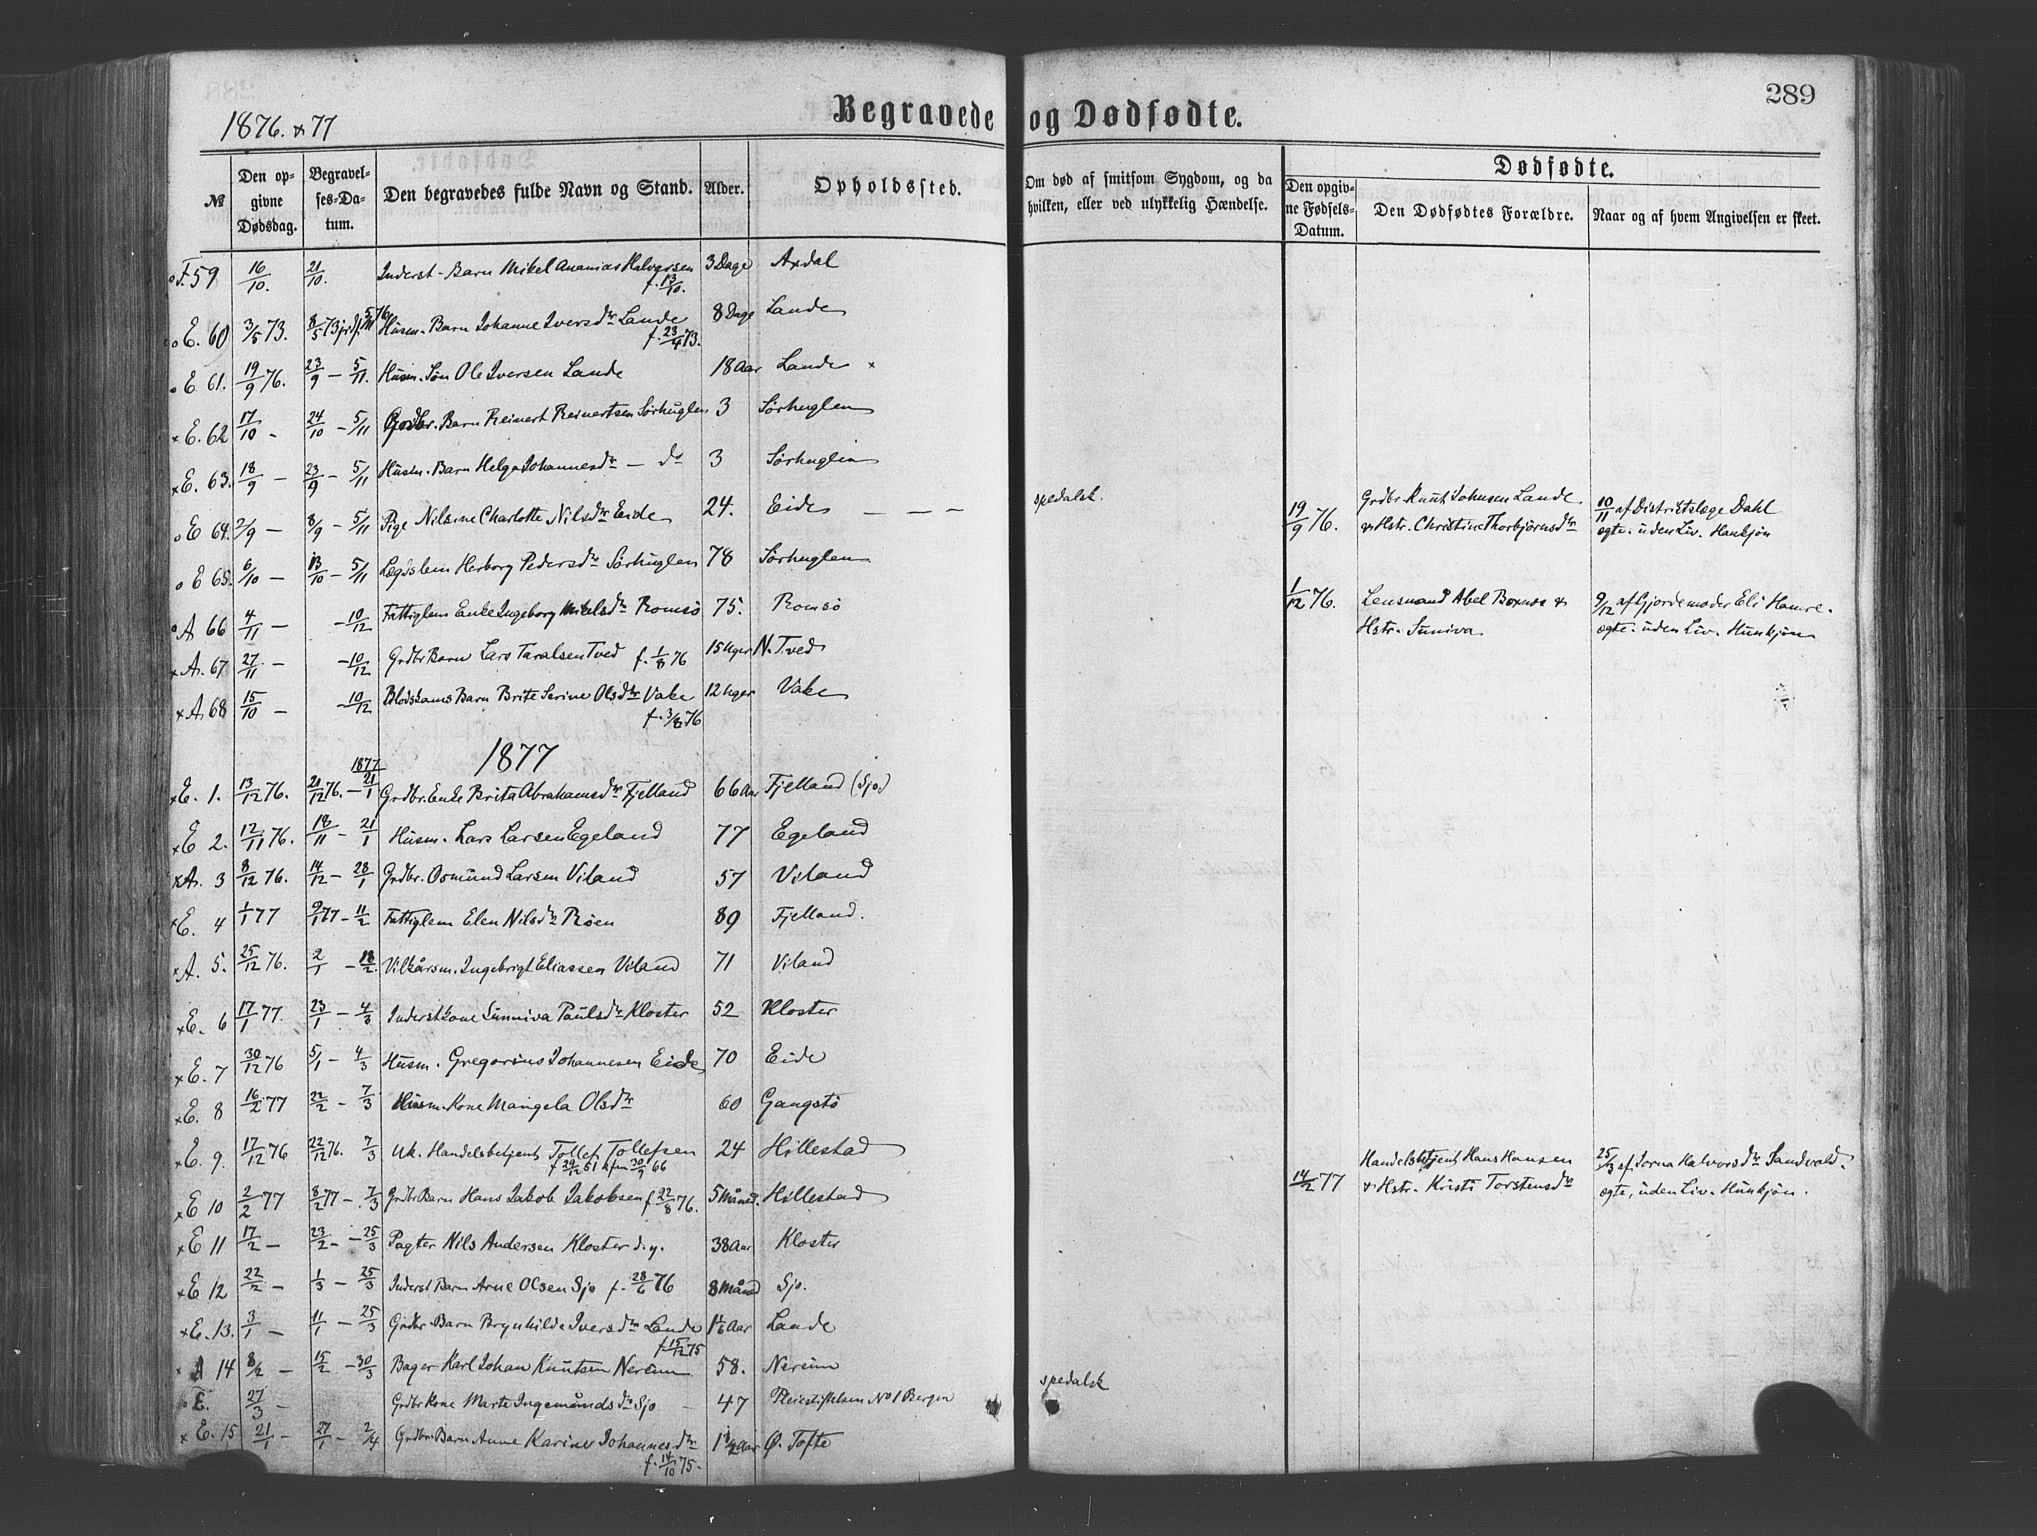 289
1876. & 77
Begravede og Dødfødte.
№
Den opgivne Dødsdag.
Begravelses-Datum.
Den begravedes fulde Navn og Stand.
Alder.
Opholdssted.
Om død af smitsom Sygdom, og da hvilken, eller ved ulykkelig Hændelse.
Dødfødte.
Den opgivne Fødsels-Datum.
Den Dødfødtes Forældre.
Naar og af hvem Angivelsen er skeet.
F. 59 16/10. 21/10. Inderst-Barn Mikel Ananias Halvorsen 3 Dage Axdal
f. 13/10.
E. 60 3/5 73. 8/5 73 jrdf. 5/11 76 Husm. Barn Johanne Iversdr Lande 8 Dage Lande
f. 23/4 73.
E. 61. 19/9 76. 23/9 – 5/11. Husm. Søn Ole Iversen Lande 18 Aar Lande
E. 62 17/10 - 24/10 – 5/11 Grdbr. Barn Reinert Reinertsen Sørhuglen 3 Sørhuglen
E. 63. 18/9 – 23/9 – 5/11 Husm. Barn Helga Johannesdr – do 3 Sørhuglen
E 64. 2/9 – 8/9 – 5/11 Pige Nilsine Charlotte Nilsdr Eide 24. Eide – – – spedalsk.
19/9 76. Grdbr Knut Johnsen Lande 10/11 af Distriktslæge Dahl
& Hstr. Christine Thorbjørnsdr ægte. uden Liv. Hankjøn
E 65. 6/10 – 13/10 – 5/11 Lægdslem Herborg Pedersdr Sørhuglen 78 Sørhuglen
A 66 4/11 – – 10/12 Fattiglem Enke Ingeborg Mikelsdr Romsø 75. Romsø
1/12 76. Lensmand Abel Bornæs & 9/12 af Gjordemoder Eli Hamre.
Hstr. Suniva ægte. uden Liv. Hunkjøn
A. 67 27/11 – – 10/12 Grdbr Barn Lars Taralsen Tved f. 1/8 76 15 Uger N. Tved
A. 68 15/10 – – 10/12 Blodskams Barn Brite Serine Olsdr Vake 12 Uger Vake
f. 3/8 76
1877
1877
E. 1. 13/12 76. 21/12 76. – 21/1 Grdbr. Enke Brita Abrahamsdr Fjelland 66 Aar Fjelland (Sjo)
E 2. 12/11 76. 18/11 – 21/1 Husm. Lars Larsen Egeland 77 Egeland
A. 3 8/12 76. 14/12 – 28/1 Grdbr. Osmund Larsen Viland 57 Viland
E. 4 1/1 77 9/1 77 – 11/2 Fattiglem Elen Nilsdr Røen 89 Fjelland.
A. 5. 25/12 76. 2/1 – 18/2. Vilkårsm. Ingebrigt Eliassen Viland 71 Viland
E. 6 17/1 77. 23/1 – 4/3 Inderstkone Sunniva Paulsdr Kloster 52 Kloster
E. 7 30/12 76 5/1 – 4/3 Husm. Gregorius Johannesen Eide 70 Eide
E. 8 16/2 77 22/2 – 7/3 Husm. Kone Mangela Olsdr 60 Gangstø
E. 9. 17/12 76 22/12 76. 7/3 Uk. Handelsbetjent Tollef Tollefsen 24 Hillestad
f 29/12 51 kfm 30/9 66
E 10 2/2 77 8/2 77 – 7/3 Grdbr Barn Hans Jakob Jakobsen f. 22/8 76. 5 Måned. Hillestad
14/2 77 Handelsbetjent Hans Hansen 25/3 af Jorna Halvorsdr Sandvald.
& Hstr. Kristi Torstensdr ægte, uden Liv. Hunkjøn.
E 11 17/2 – 23/2 – – 25/3 Pagter Nils Andersen Kloster d. y. 38 Aar Kloster
E 12 22/2 – 1/3 – 25/3 Inderst Barn Arne Olsen Sjo f. 28/6 76 8 Måned Sjo.
E. 13. 3/1 – 11/1 – 25/3 Grdbr Barn Brynhilde Iversdr Lande 1 1/6 Aar Lande
f. 15/12 75
A 14 8/2 – 15/2 – 30/3 Bager Karl Johan Knutsen Nereim 58. Nereim
E. 27/3 – Grdbr Kone Marte Ingemundsdr Sjo – 47 Pleiestiftelsen No 1 Bergen spedalsk
E. 15 21/1 – 27/1 – 2/4 Grdbr. Barn Anne Karine Johannesdr 1 1/2 Aar Ø. Tofte
f. 14/10 75.